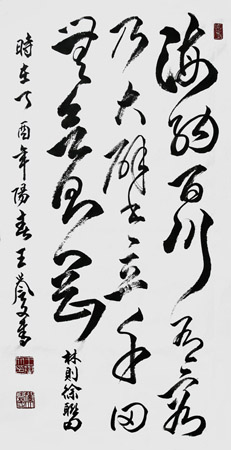 海納百川有容
乃大壁立千仞
無欲則剛
林則徐聯句
時在丁酉年陽春王